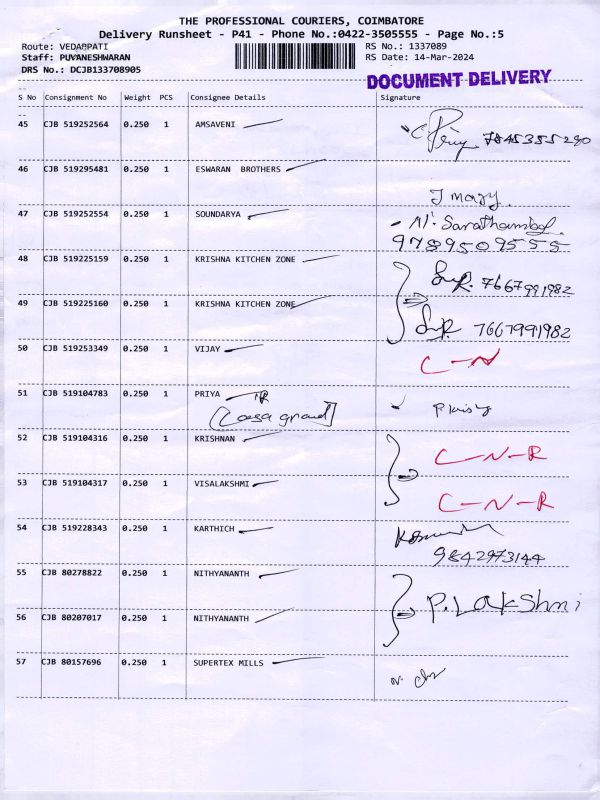 THE PROFESSIONAL COURIERS, COIMBATORE
Delivery Runsheet - P41 - Phone No.:0422-3505555 - Page No.:5
Route: VEDAPPATI RS No.: 1337089
Staff: PUVANESHWARAN RS Date: 14-Mar-2024
DRS No.: DCJB133708905
DOCUMENT DELIVERY
S No Consignment No Weight PCS Consignee Details Signature
45 CJB 519252564 0.250 1 AMSAVENI 7845355290
46 CJB 519295481 0.250 1 ESWARAN BROTHERS J mary.
47 CJB 519252554 0.250 1 SOUNDARYA - N. Sarathambal
9789509555
48 CJB 519225159 0.250 1 KRISHNA KITCHEN ZONE 7667991982
49 CJB 519225160 0.250 1 KRISHNA KITCHEN ZONE 7667991982
50 CJB 519253349 0.250 1 VIJAY C-N
51 CJB 519104783 0.250 1 PRIYA
[Casa grand]
52 CJB 519104316 0.250 1 KRISHNAN C-N-R
53 CJB 519104317 0.250 1 VISALAKSHMI C-N-R
54 CJB 519228343 0.250 1 KARTHICH
9842973144
55 CJB 80278822 0.250 1 NITHYANANTH P. Lakshmi
56 CJB 80207017 0.250 1 NITHYANANTH
57 CJB 80157696 0.250 1 SUPERTEX MILLS